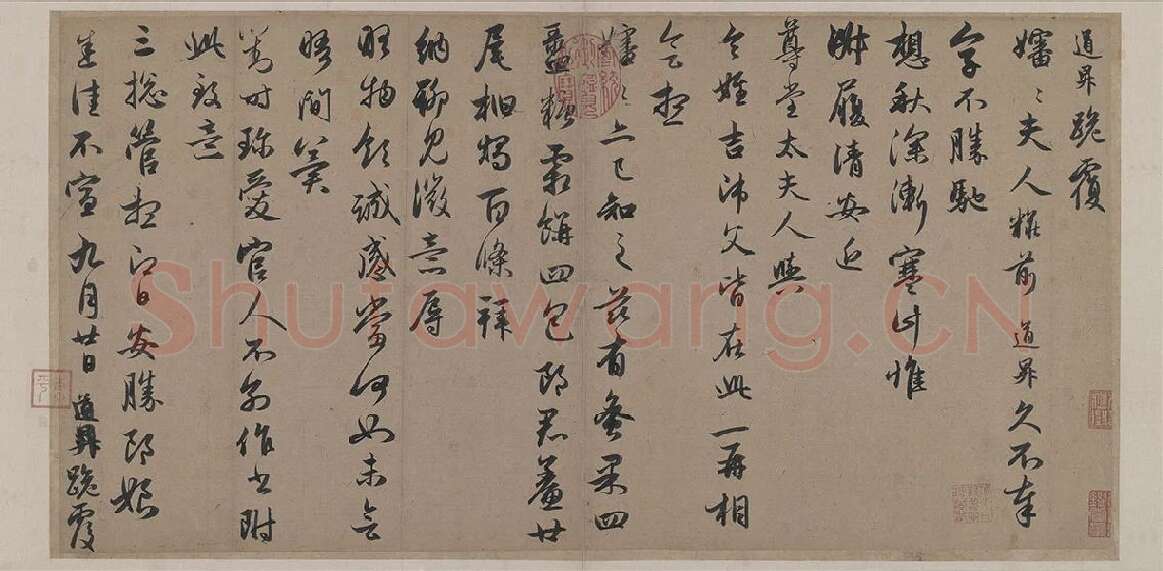 道昇跪覆
嬸〻夫人粧前道昇久不奉
字不勝馳
想秋深漸寒計惟
淑履清安近
尊堂太夫人與
令姪吉師父皆在此一再相
會想
嬸〻亦已知之茲有蜜果四
盝糖霜餅四包郎君鯗廿
尾桕燭百條拜
納聊見微意辱
物領誠感當何如未會
晤間冀
對時珍愛官人不別作書附
此致意
三總管想即日安勝郎娘
佳不宣九月廿日道昇跪覆
Shufawang.CN